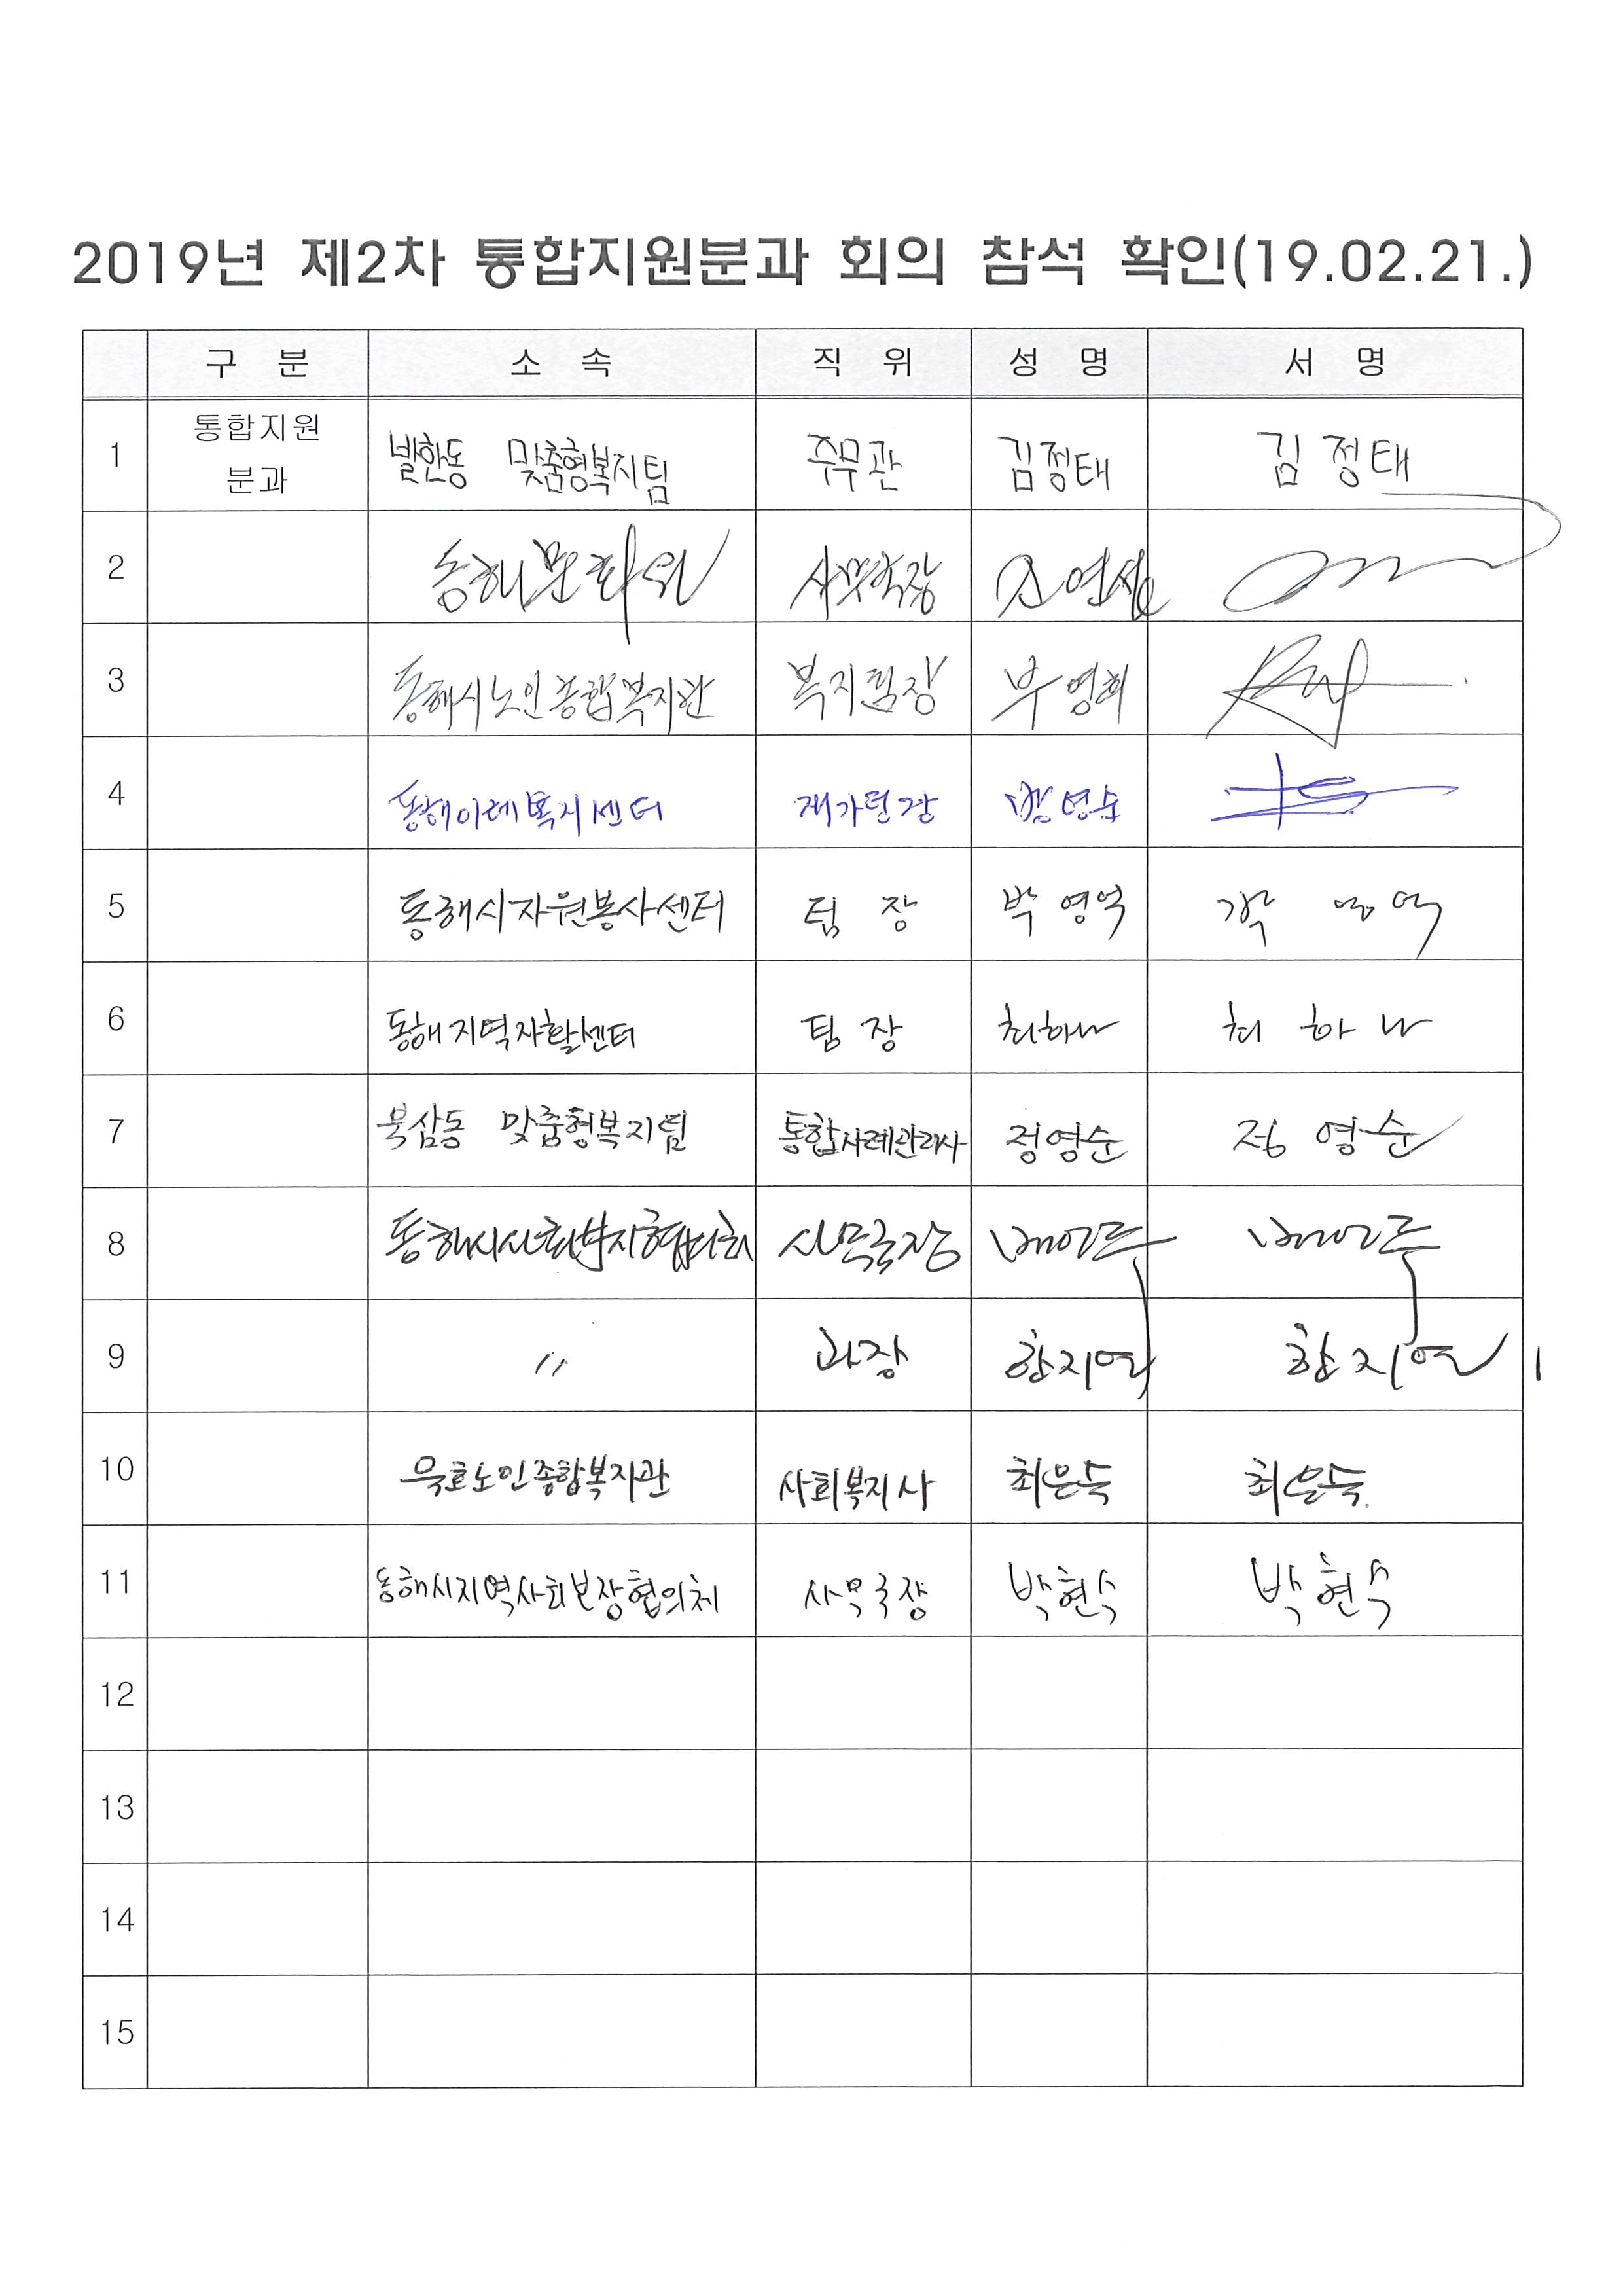 2019년 제2차 통합지원분과 회의 참석 확인(19.02.21.)
구 분 소 속 직 위 성 명 서 명
1 통합지원 분과 발한동 맞춤형복지팀 주무관 김정태 김정태
2 동해문화원 사무국장 조연섭
3 동해시노인종합복지관 복지팀장 부영희
4 동해이레복지센터 재가팀장 영순
5 동해시자원봉사센터 팀 장 박영억
6 동해지역자활센터 팀 장 최하나 최 하 나
7 북삼동 맞춤형복지팀 통합사례관리사 정영순 정 영 순
8 동해시사회복지협의회 사무국장
9 〃 과장 함지연 함지연
10 묵호노인종합복지관 사회복지사 최은숙 최은숙
11 동해시지역사회보장협의체 사무국장 박현수 박현수
12
13
14
15